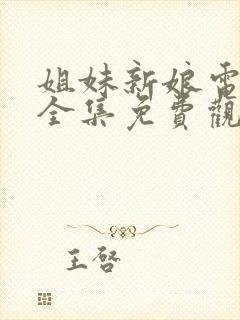 姐妹新娘電
全集免費觀
王啓